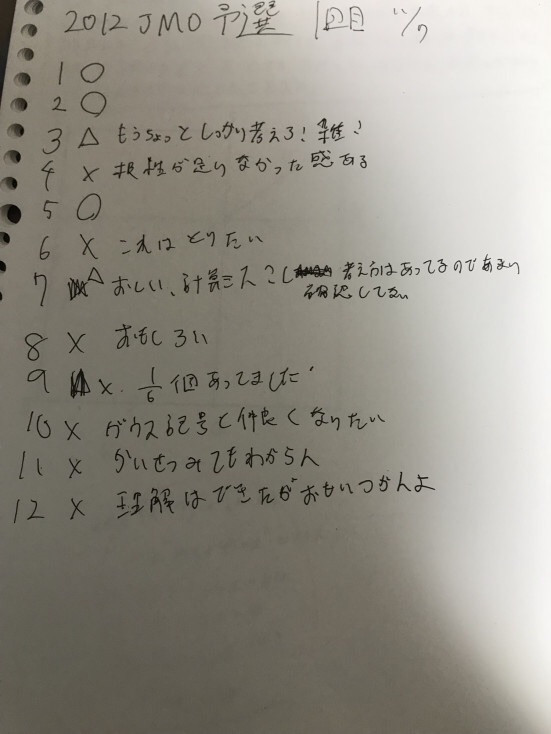 2012 JMO 予選 1回目 11/9
1 ○
2 ○
3 △ もうちょっとしっかり考えろ! 雑!
4 × 根性が足りなかった感ある
5 ○
6 × これはとりたい
7 △ おしい、計算ミス 考え方はあってるのであまり
確認してない
8 × おもしろい
9 × 1/6 個あってました
10 × ガウス記号と仲良くなりたい
11 × かいせつみてもわからん
12 × 理解はできたがおもいつかんよ